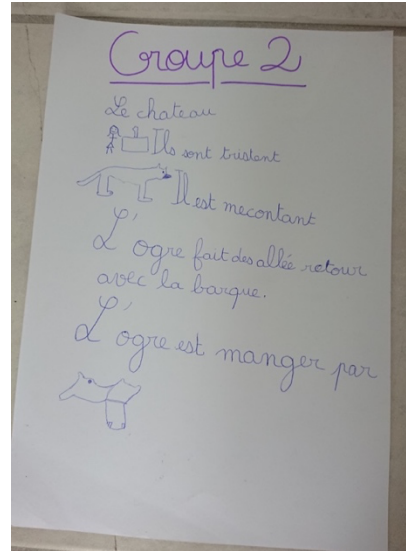 Groupe 2
Le chateau
Ils sont tristent
Il est mecontant
L'ogre fait des allée retour
avec la barque.
L'ogre est manger par